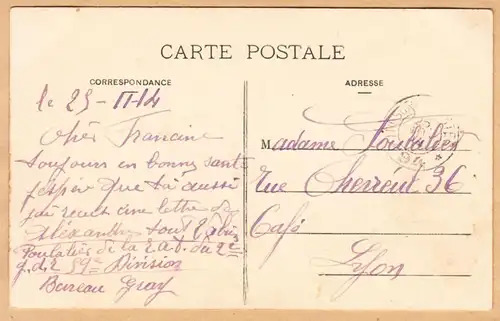 CARTE POSTALE
CORRESPONDANCE
le 25-II-14
Chèr Francine
toujours en bonne santé
j'espèr que toi aussi
j'ai reçut une lettre de
Alexandre tout
Poutalier de la 2
g.d.2 57me Division
Bureau Gray
ADRESSE
Madame Poutalier
rue Chevreul 36
Café
Lyon